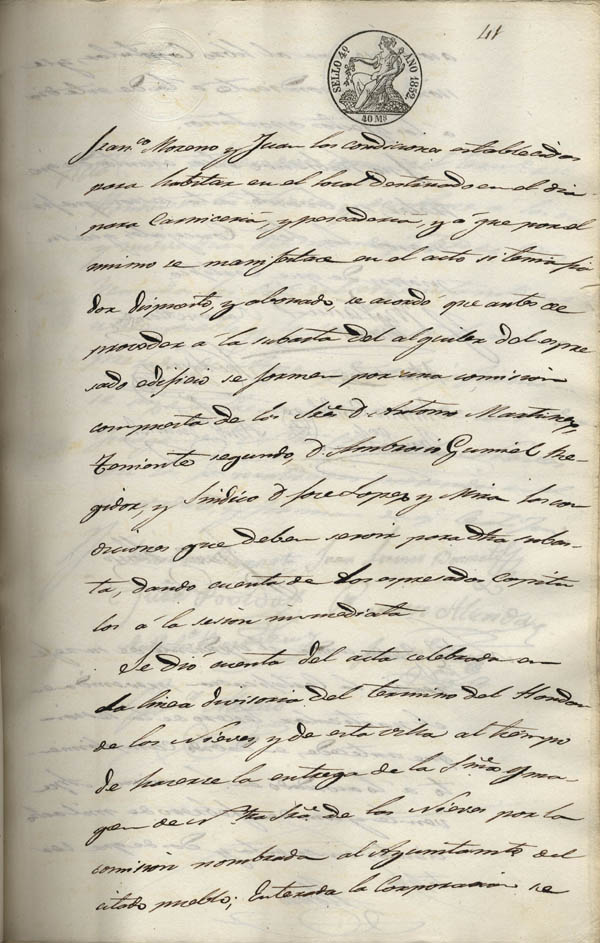 41
SELLO 4º AÑO 1852.
40 Ms
Fran.co Moreno y Juan los condiciones establecidas
para habitar en el local destinado en el dia
para Carniceria, y pescaderia, y á que por el
mismo se manifestase en el acto si tenia fia
dor dispuesto, y abonado, se acordó que antes de
proceder a la subasta del alquiler del espre
sado edificio se formen por una comision
compuesta de los Señ.s D. Antonio Martinez,
Teniente segundo, D. Ambrosio Gumiel Re-
gidor, y Sindico D. Jose Lopez y Mira los con
diciones que deben servir para dha subas-
ta, dando cuenta de los espresados Capitu
los á la sesion inmediata
Se dió cuenta del acta celebrada en
la linea divisoria del termino del Hondon
de los Nieves, y de esta villa al tiempo
de hacerse la entrega de la Sma Yma-
gen de Ntra Sra. de las Nieves por la
comision nombrada al Ayuntamto del
citado pueblo; Enterada la Corporacion se